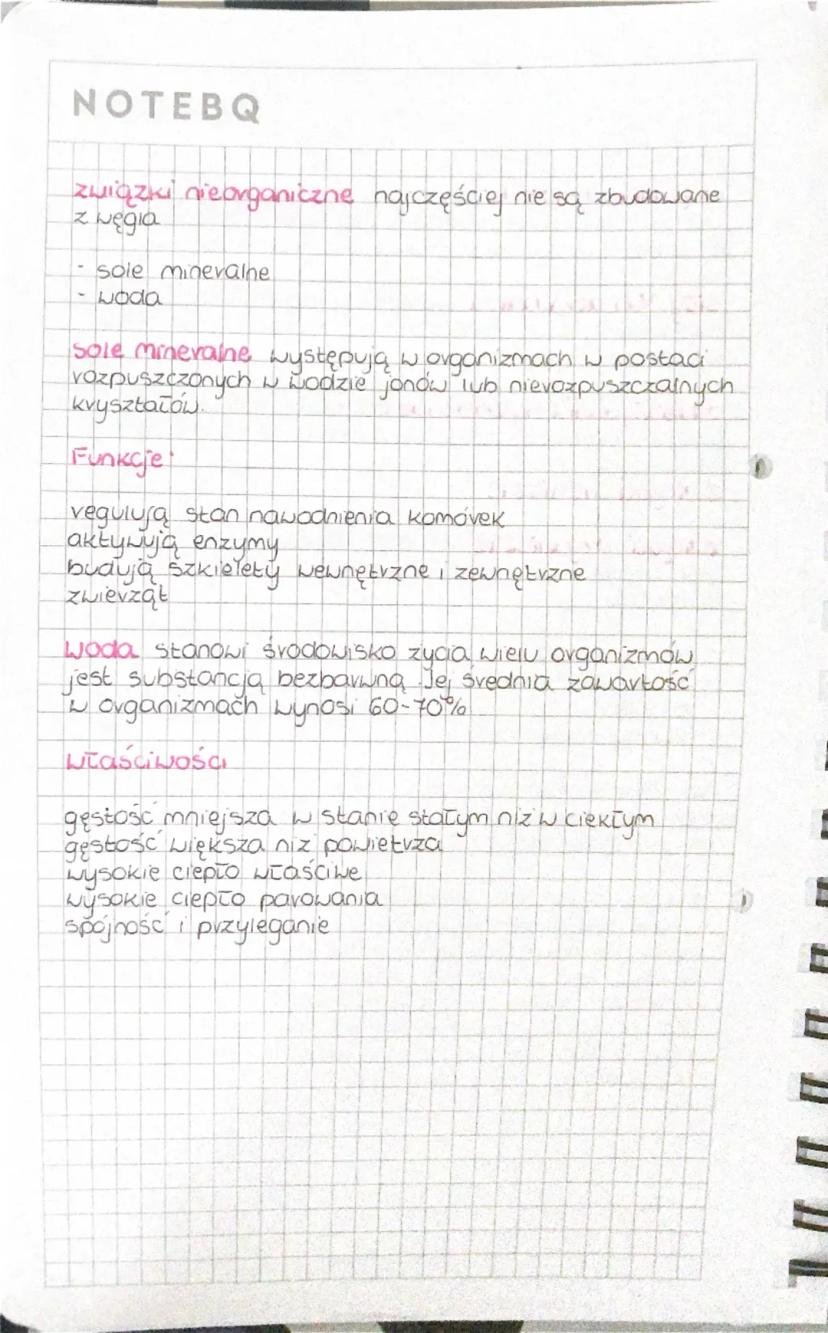 NOTEBQ
związki nieorganiczne najczęściej nie są zbudowane
z węgla
- sole mineralne
- woda
sole mineralne występują w organizmach w postaci
rozpuszczonych w wodzie jonów lub nierozpuszczalnych
kryształów.
Funkcje:
regulują stan nawodnienia komórek
aktywują enzymy
budują szkielety wewnętrzne i zewnętrzne
zwierząt
woda stanowi środowisko życia wielu organizmów
jest substancją bezbarwną. Jej średnia zawartość
w organizmach wynosi 60-70%
właściwości
gęstość mniejsza w stanie stałym niż w ciekłym
gęstość większa niż powietrza
wysokie ciepło właściwe
wysokie ciepło parowania
spójność i przyleganie